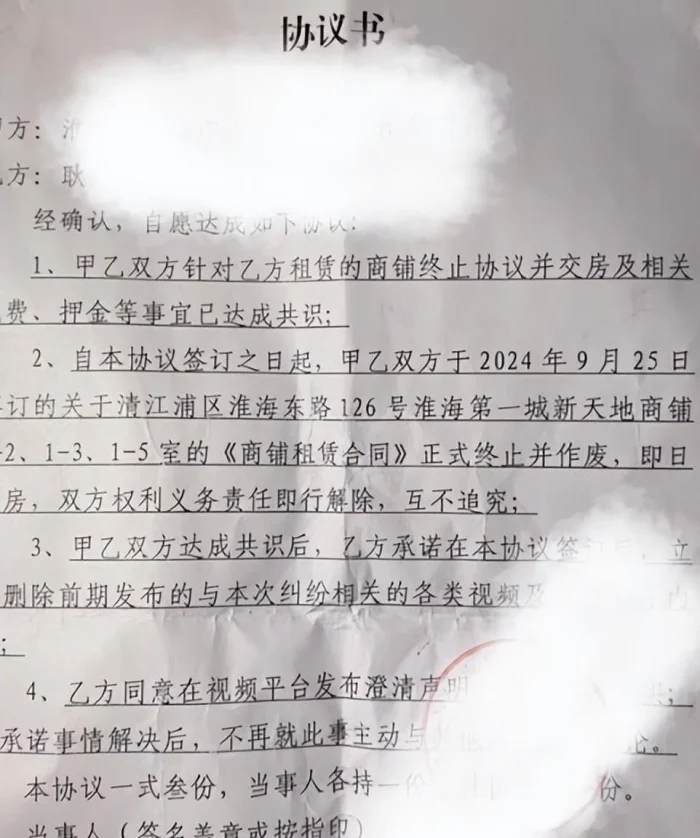 协议书
方：淮
方：耿
经确认，自愿达成如下协议：
1、甲乙双方针对乙方租赁的商铺终止协议并交房及相关
费、押金等事宜已达成共识；
2、自本协议签订之日起，甲乙双方于 2024 年 9 月 25 日
订的关于清江浦区淮海东路 126 号淮海第一城新天地商铺
-2、1-3、1-5 室的《商铺租赁合同》正式终止并作废，即日
房，双方权利义务责任即行解除，互不追究；
3、甲乙双方达成共识后，乙方承诺在本协议签订后，立
删除前期发布的与本次纠纷相关的各类视频及
；
4、乙方同意在视频平台发布澄清声明
承诺事情解决后，不再就此事主动与其他 论。
本协议一式叁份，当事人各持一份 份。
当事人（签名盖章或按指印）